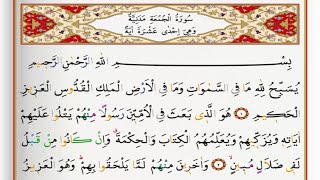 سُورَةُ الْجُمُعَةِ مَدَنِيَّةٌ
وَهِيَ اِحْدٰى عَشْرَةَ اٰيَةً
بِسْمِ اللّٰهِ الرَّحْمٰنِ الرَّحِيمِ
يُسَبِّحُ لِلّٰهِ مَا فِي السَّمٰوَاتِ وَمَا فِي الْاَرْضِ الْمَلِكِ الْقُدُّوسِ الْعَزِيزِ
الْحَكِيمِ ۝ هُوَ الَّذِي بَعَثَ فِي الْاُمِّيِّنَ رَسُولًا مِنْهُمْ يَتْلُوا عَلَيْهِمْ
اٰيَاتِهِ وَيُزَكِّيهِمْ وَيُعَلِّمُهُمُ الْكِتَابَ وَالْحِكْمَةَ وَاِنْ كَانُوا مِنْ قَبْلُ
لَفِي ضَلَالٍ مُبِينٍ ۝ وَاٰخَرِينَ مِنْهُمْ لَمَّا يَلْحَقُوا بِهِمْ وَهُوَ الْعَزِيزُ